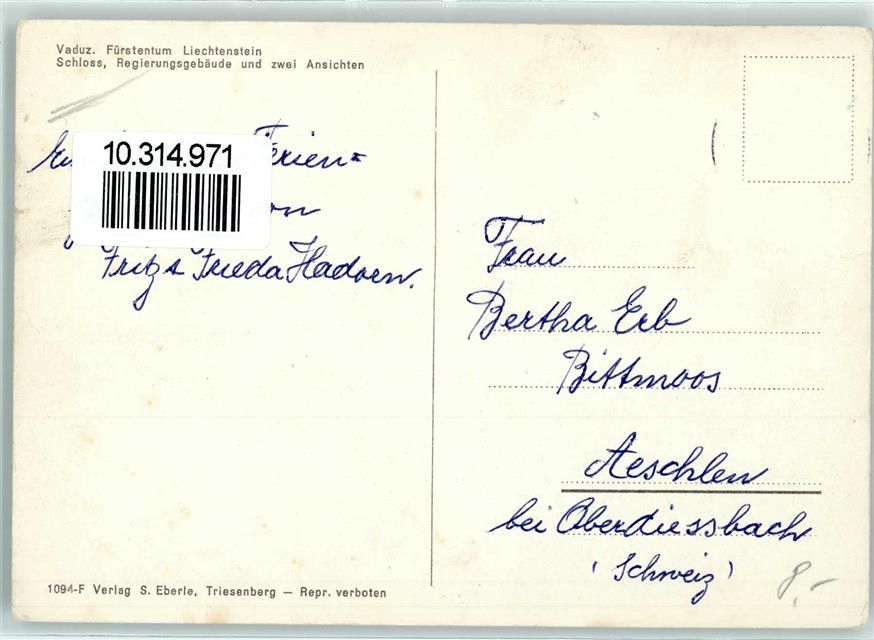 Vaduz. Fürstentum Liechtenstein
Schloss, Regierungsgebäude und zwei Ansichten
10.314.971
Ferien=
von
Fritz & Frieda Hadorn.
Frau
Bertha Erb
Bittmoos
Aeschlen
bei Oberdiessbach
(Schweiz)
8,-
1094-F Verlag S. Eberle, Triesenberg — Repr. verboten